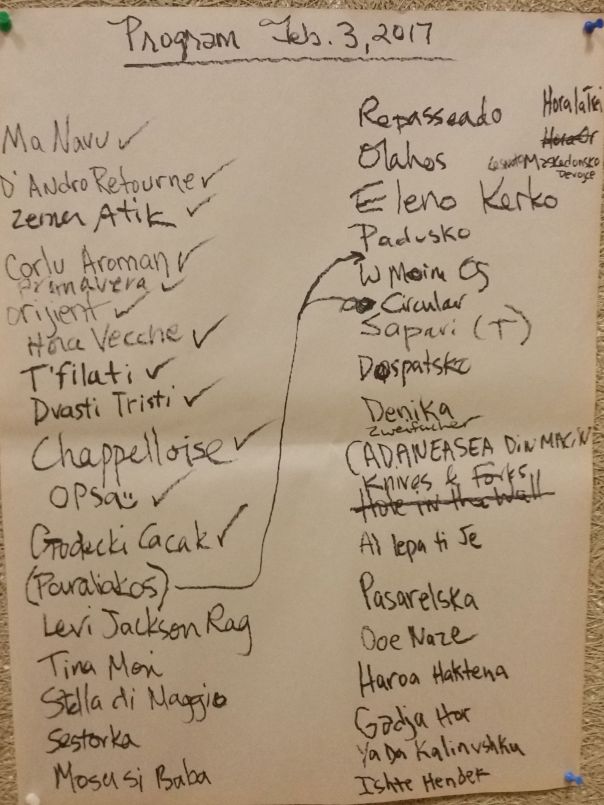 Program Feb. 3, 2017
Ma Navu ✓
D'Andro Retourne ✓
Zemer Atik ✓
Corlu Aroman ✓
Primavera ✓
Orijent ✓
Hora Vecche ✓
T'filati ✓
Dvasti Tristi ✓
Chappelloise ✓
OPSa ✓
Godecki Cacak ✓
(Pouraliakos)
Levi Jackson Rag
Tina Mori
Stella di Maggio
Sestorka
Mosu si Baba
Repasseado
Hora la Trei
Hora Or
Olahos
Lesnoto Maskedonsko
Devojce
Eleno Kerko
Padusko
W Moim Og
Circular
Sapari (T)
Dospatsko
Denika
Zweifacher
CADANEASEA DIN MACIN
Knives & Forks
Hole in the Wall
Ai lepa ti Je
Pasarelska
Doe Naze
Haroa Haktena
Gadja Hor
Ya Da Kalinushku
Ishte Hendek